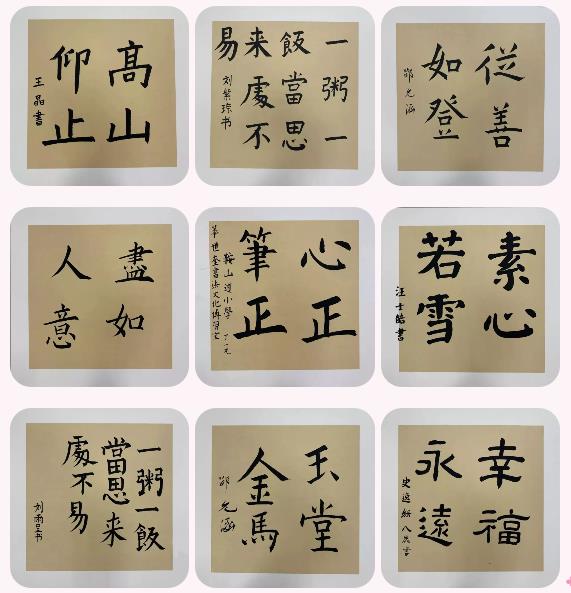 高山
仰止
王晶書
一粥一
飯當思
来處不
易
刘紫琮书
従善
如登
邵允涵
盡如
人意
心正
筆正
鞍山道小學 丁一元
華世奎書法文化傳習室
素心
若雪
汪士皓書
一粥一飯
當思来
處不易
刘雨呈书
玉堂
金馬
邵允涵
幸福
永遠